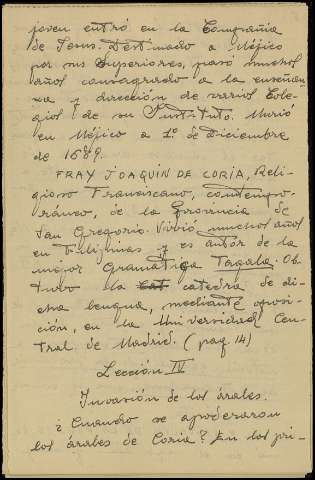 joven entró en la Compañía
de Jesús. Destinado a Méjico
por sus superiores, pasó muchos
años consagrado a la enseñan-
za y dirección de varios Cole-
gios de su Instituto. Murió
en Méjico a 1º de Diciembre
de 1689.
FRAY JOAQUÍN DE CORIA, Reli-
gioso Franciscano, contempo-
ráneo, de la Provincia de
San Gregorio. Vivió muchos años
en Filipinas y es autor de la
mejor Gramática Tagala. Ob-
tuvo la cat catedra de di-
cha lengua, mediante oposi-
ción, en la Universidad Cen-
tral de Madrid. (pag. 14)
Lección IV
Invasión de los árabes.
¿Cuando se apoderaron
los árabes de Coria? En los pri-